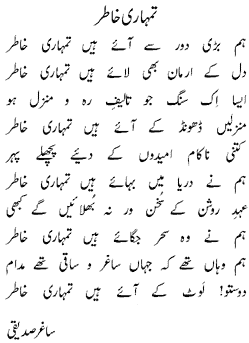 تمہاری خاطر
ہم بڑی دور سے آئے ہیں تمہاری خاطر
دل کے ارمان بھی لائے ہیں تمہاری خاطر
ایسا اِک سنگ جو تالیفِ رہ و منزل ہو
منزلیں ڈھونڈ کے آئے ہیں تمہاری خاطر
کتنی ناکام امیدوں کے دئیے پچھلے پہر
ہم نے دریا میں بہائے ہیں تمہاری خاطر
عہدِ روشن کے سُخن ور نہ بُھلائیں گے کبھی
ہم نے وہ سحر جگائے ہیں تمہاری خاطر
ہم وہاں تھے کہ جہاں ساغر و ساقی تھے مدام
دوستو! لَوٹ کے آئے ہیں تمہاری خاطر
ساغر صدیقی